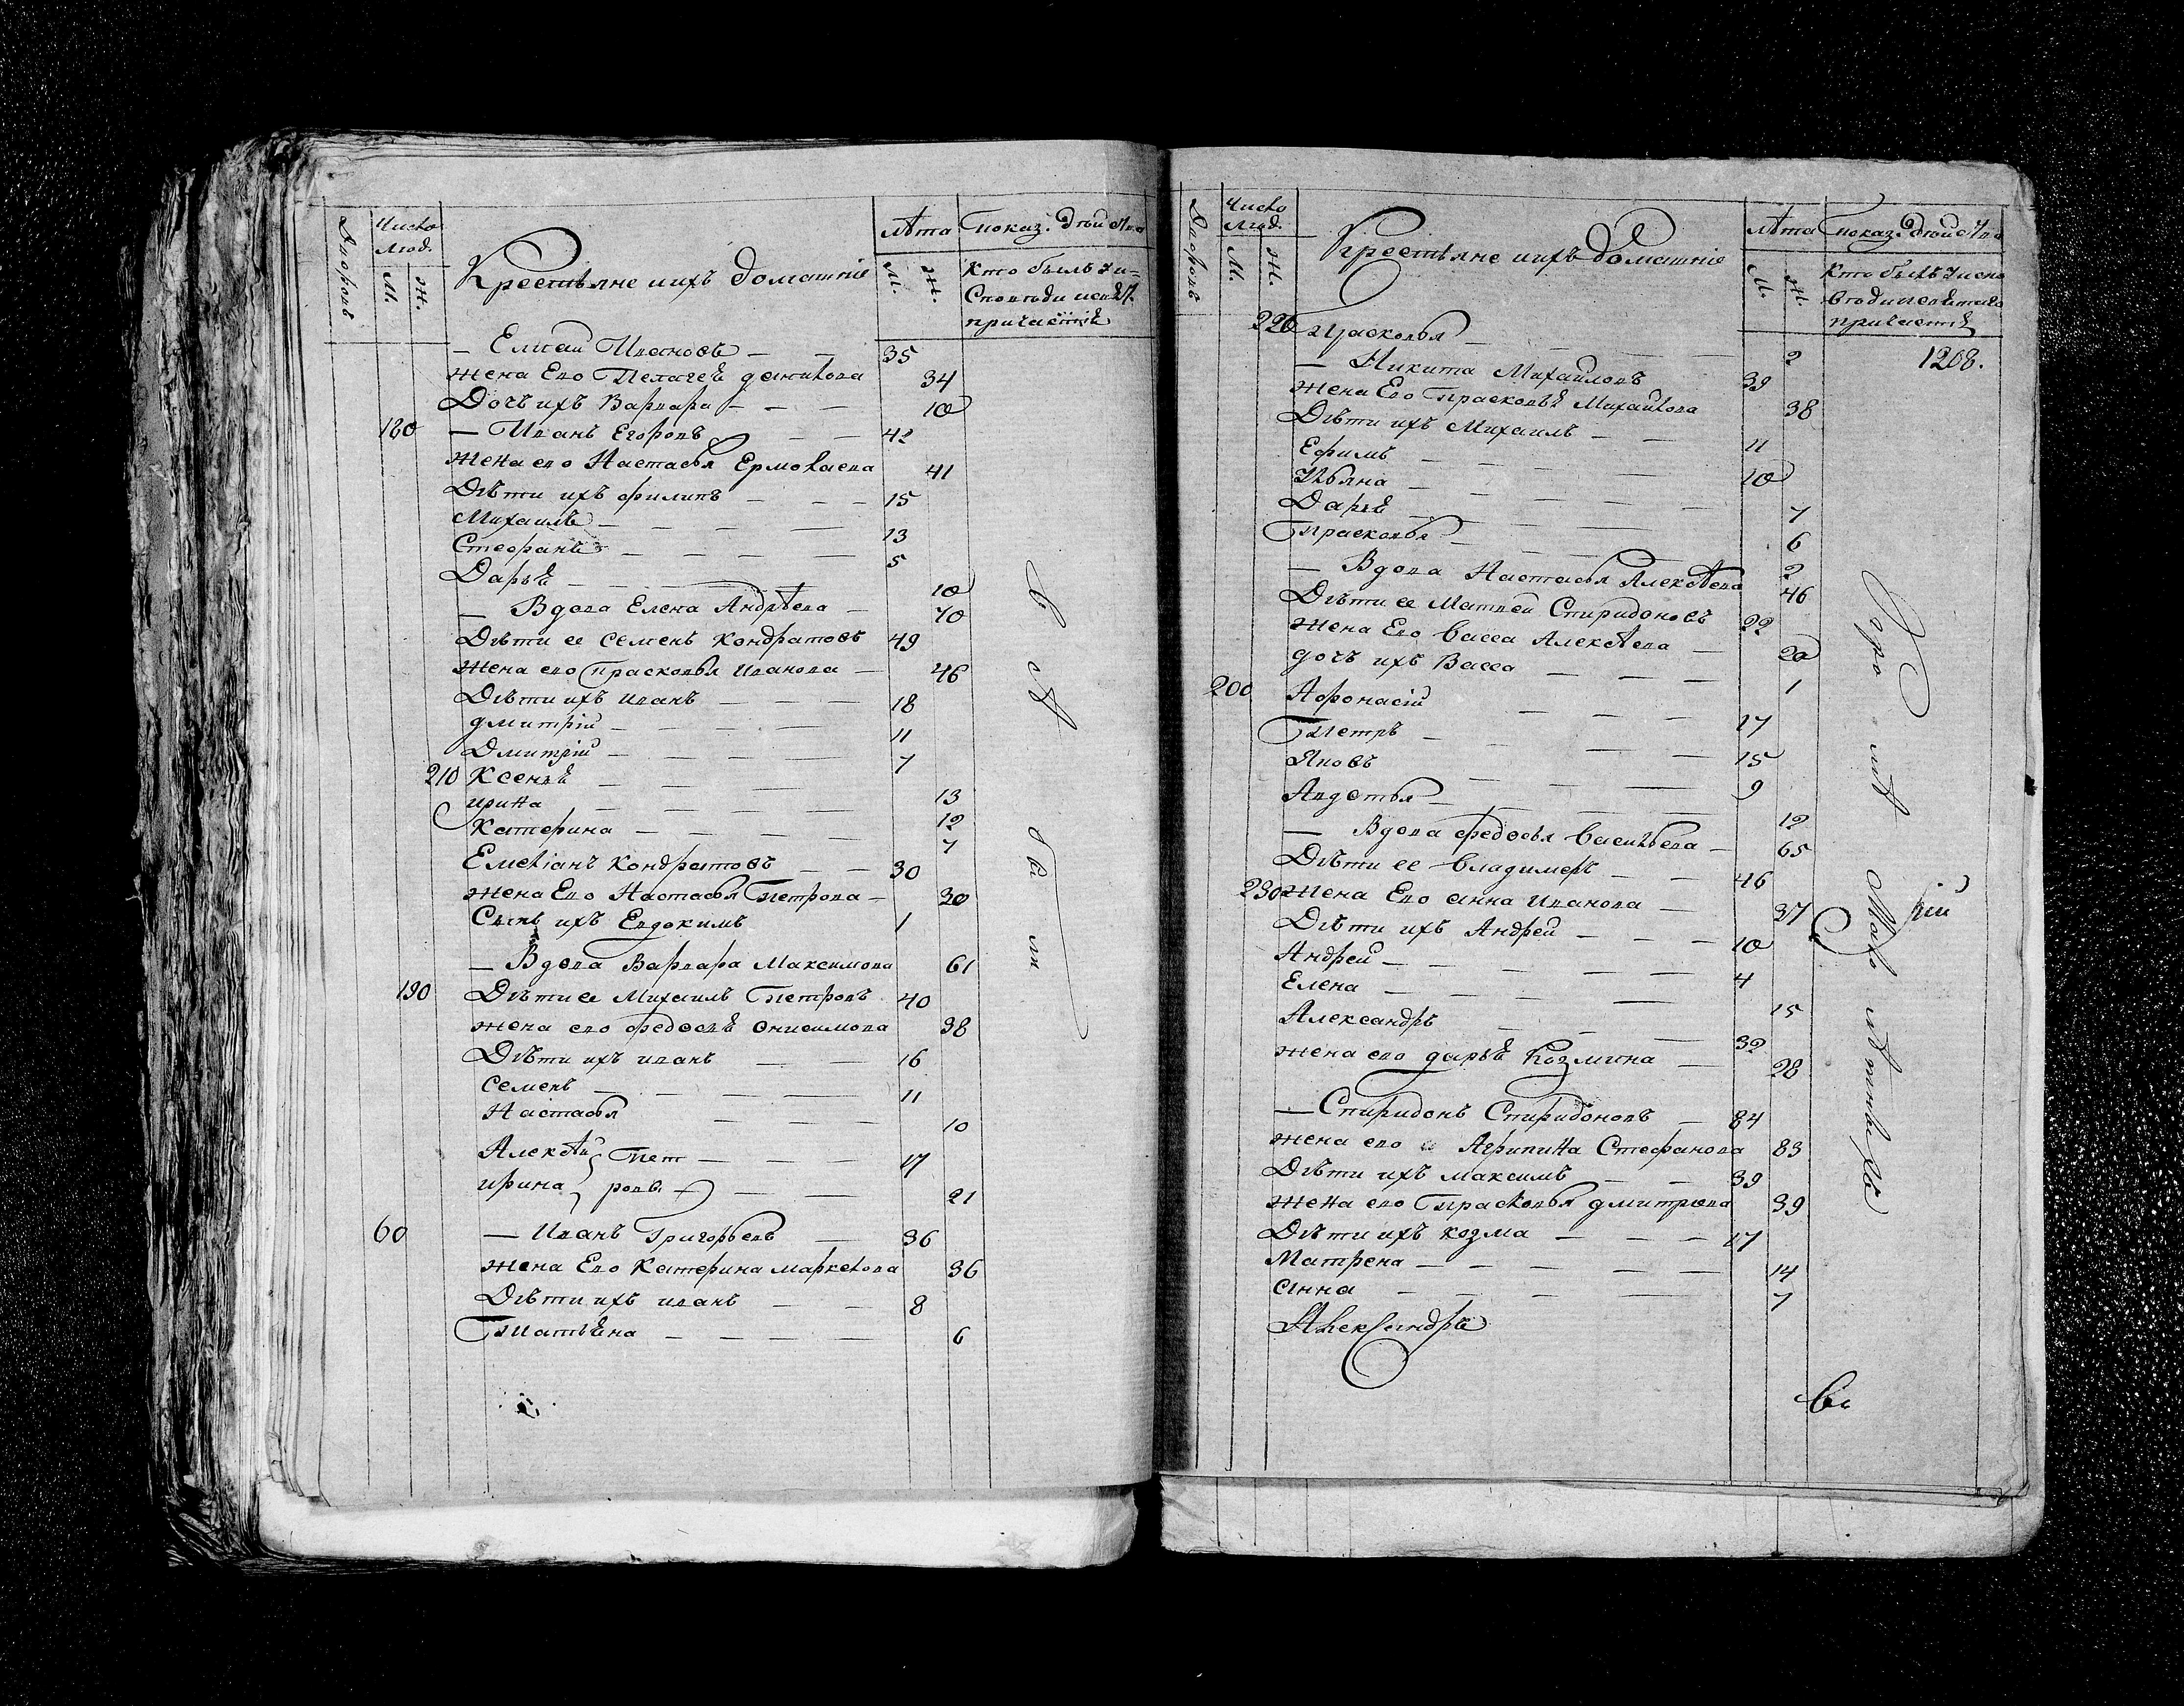 Дворовъ
Число люд.
М. Ж.
Крестьяне ихъ домашніе
лѣта
М. Ж.
показ. дѣйства
Кто былъ у и-
споведи исв.
причастія
– Елисей Ивановъ – – 35
жена Ево Пелагеѣ данилова 34
Дочь ихъ Варвара – – – 10
180 – Иванъ Егоровъ – – 42
жена ево Настасья Ермолаева 41
Дѣти ихъ филипъ – – – 15
Михаилъ – – – – 13
Стефанъ – – – – 5
Дарьѣ – – – – 10
– Вдова Елена Андрѣева – 70
Дѣти ее Семенъ Кондратовъ 49
жена ево Прасковья Иванова – 46
Дѣти ихъ иванъ – – – 18
дмитрій – – – – 11
Дмитрій – – – – 7
210 Ксеньѣ – – – – 13
ирина – – – – 12
Катерина – – – – 7
Емеліанъ Кондратовъ – – 30
жена Ево Настасья Петрова – 30
Сынъ ихъ Евдокимъ 1
– Вдова Варвара Максимова 61
190 Дѣти ее Михаилъ Петровъ 40
жена ево федосьѣ Онисимова 38
Дѣти ихъ иванъ – – 16
Семенъ – – – – 11
Настасья – – – 10
Алексѣй } Пет – – – 17
ирина } ровы – – – 21
60 – Иванъ Григорьевъ – 36
жена Ево Катерина маркелова 36
Дѣти ихъ иванъ – – 8
Татьѣна – – – – 6
Дворовъ
Число люд.
М. Ж.
Крестьяне ихъ домашніе
лѣта
М. Ж.
показ. дѣйства
Кто былъ у испо
причастія
220 Прасковья – – – 2
1208.
– Никита Михаиловъ 39
жена Ево Прасковьѣ Михаилова 38
Дѣти ихъ Михаилъ – – 11
Ефимъ – – – – 10
Ульяна – – – – 7
Дарьѣ – – – – 6
Прасковья – – – – 2
– Вдова Настасья Алексѣева 46
Дѣти ее Матвей Спиридоновъ 22
жена Ево Васса Алексѣева – 20
дочь ихъ Васса – – – 1
200 Афонасій – – – 17
Петръ – – – 15
Яковъ – – – 9
Авдотья – – – – 12
– Вдова федосья Васильева – 65
Дѣти ее Владимеръ – – 46
230 жена Ево анна Иванова – 37
Дѣти ихъ Андрей – – – 10
Андрей – – – – 4
Елена – – – – 15
Александръ – – – 32
жена ево дарьѣ Козмина – 28
– Спиридонъ Спиридоновъ – 84
жена ево Агрипина Стефанова 83
Дѣти ихъ максимъ – – 39
жена ево Прасковья дмитріева 39
Дѣти ихъ козма – – – 17
Матрена – – – – 14
анна – – – – 7
Александръ